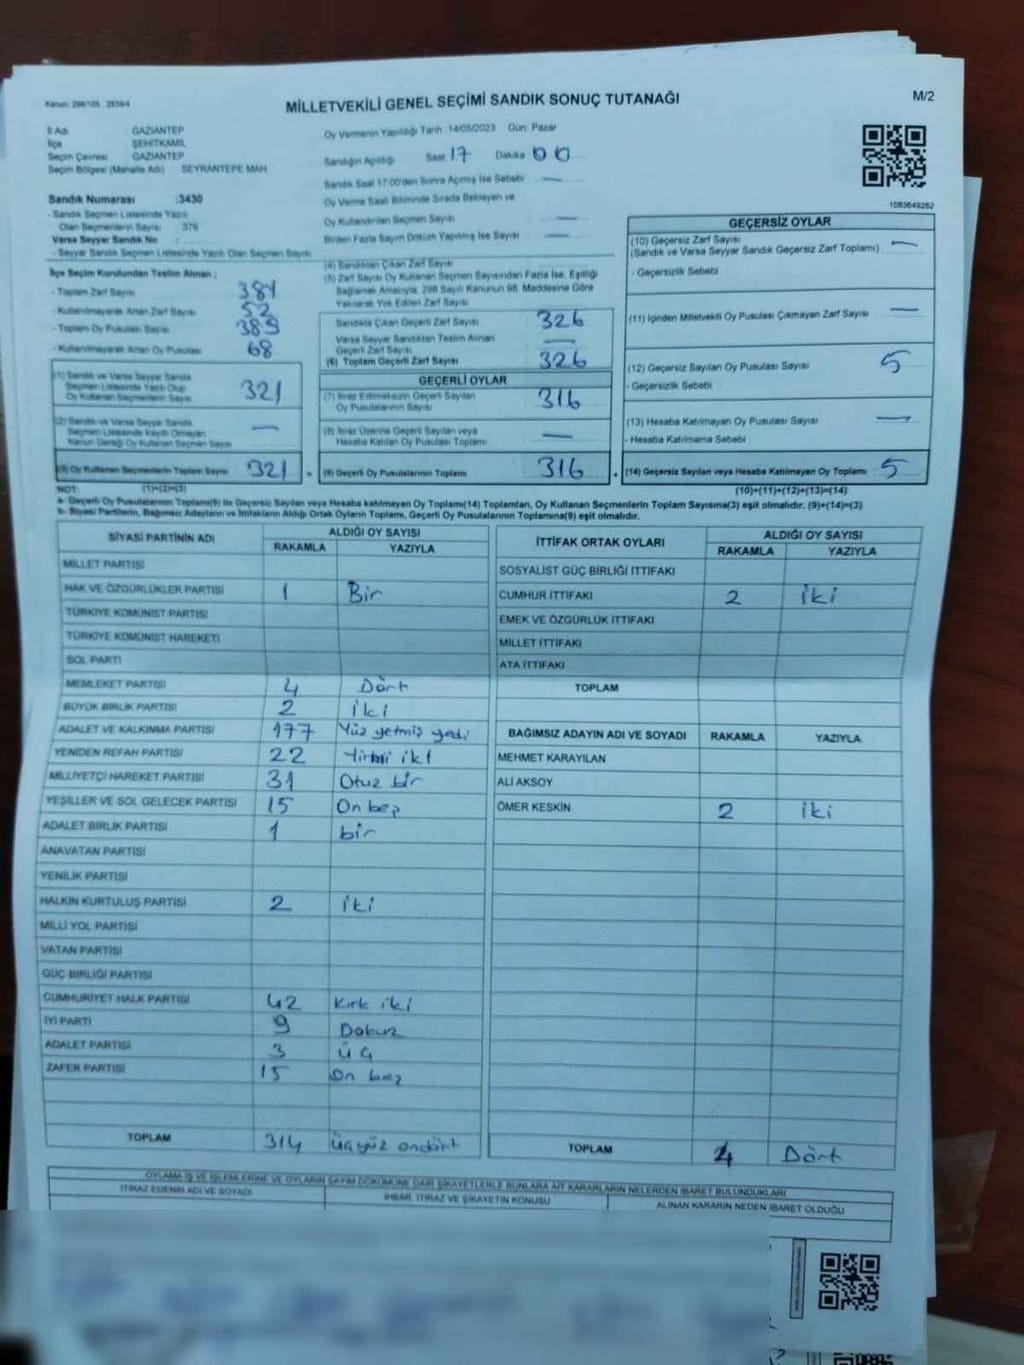 Kanun: 298/105 , 2839/4
MİLLETVEKİLİ GENEL SEÇİMİ SANDIK SONUÇ TUTANAĞI
M/2
İl Adı GAZİANTEP
İlçe ŞEHİTKAMİL
Seçim Çevresi GAZİANTEP
Seçim Bölgesi (Mahalle Adı) SEYRANTEPE MAH
Sandık Numarası :3430
- Sandık Seçmen Listesinde Yazılı
Olan Seçmenlerin Sayısı 379
Varsa Seyyar Sandık No :
- Seyyar Sandık Seçmen Listesinde Yazılı Olan Seçmen Sayısı
Oy Vermenin Yapıldığı Tarih :14/05/2023 Gün: Pazar
Sandığın Açıldığı Saat 17 Dakika 00
Sandık Saat 17:00'den Sonra Açılmış İse Sebebi —
Oy Verme Saati Bitiminde Sırada Bekleyen ve
Oy Kullandırılan Seçmen Sayısı —
Birden Fazla Sayım Döküm Yapılmış İse Sayısı —
1083649262
İlçe Seçim Kurulundan Teslim Alınan ;
- Toplam Zarf Sayısı
- Kullanılmayarak Artan Zarf Sayısı 52
- Toplam Oy Pusulası Sayısı
- Kullanılmayarak Artan Oy Pusulası 68
(1) Sandık ve Varsa Seyyar Sandık
Seçmen Listesinde Yazılı Olup
Oy Kullanan Seçmenlerin Sayısı 321
(2) Sandık ve Varsa Seyyar Sandık
Seçmen Listesinde Kayıtlı Olmayan
Kanun Gereği Oy Kullanan Seçmen Sayısı —
(3) Oy Kullanan Seçmenlerin Toplam Sayısı 321 =
(1)+(2)=(3)
(4) Sandıktan Çıkan Zarf Sayısı
(5) Zarf Sayısı Oy Kullanan Seçmen Sayısından Fazla İse, Eşitliği
Sağlamak Amacıyla, 298 Sayılı Kanunun 98. Maddesine Göre
Yakılarak Yok Edilen Zarf Sayısı
Sandıkta Çıkan Geçerli Zarf Sayısı 326
Varsa Seyyar Sandıktan Teslim Alınan
Geçerli Zarf Sayısı —
(6) Toplam Geçerli Zarf Sayısı 326
GEÇERLİ OYLAR
(7) İtiraz Edilmeksizin Geçerli Sayılan
Oy Pusulalarının Sayısı 316
(8) İtiraz Üzerine Geçerli Sayılan veya
Hesaba Katılan Oy Pusulası Toplamı —
(9) Geçerli Oy Pusulalarının Toplamı 316 +
GEÇERSİZ OYLAR
(10) Geçersiz Zarf Sayısı —
(Sandık ve Varsa Seyyar Sandık Geçersiz Zarf Toplamı)
- Geçersizlik Sebebi
(11) İçinden Milletvekili Oy Pusulası Çıkmayan Zarf Sayısı —
(12) Geçersiz Sayılan Oy Pusulası Sayısı 5
- Geçersizlik Sebebi
(13) Hesaba Katılmayan Oy Pusulası Sayısı —
- Hesaba Katılmama Sebebi
(14) Geçersiz Sayılan veya Hesaba Katılmayan Oy Toplamı 5
(10)+(11)+(12)+(13)=(14)
NOT:
a- Geçerli Oy Pusulalarının Toplamı(9) ile Geçersiz Sayılan veya Hesaba katılmayan Oy Toplamı(14) Toplamları, Oy Kullanan Seçmenlerin Toplam Sayısına(3) eşit olmalıdır. (9)+(14)=(3)
b- Siyasi Partilerin, Bağımsız Adayların ve İttifakların Aldığı Ortak Oyların Toplamı, Geçerli Oy Pusulalarının Toplamına(9) eşit olmalıdır.
SİYASİ PARTİNİN ADI ALDIĞI OY SAYISI
RAKAMLA YAZIYLA
MİLLET PARTİSİ
HAK VE ÖZGÜRLÜKLER PARTİSİ 1 Bir
TÜRKİYE KOMÜNİST PARTİSİ
TÜRKİYE KOMÜNİST HAREKETİ
SOL PARTİ
MEMLEKET PARTİSİ 4 Dört
BÜYÜK BİRLİK PARTİSİ 2 iki
ADALET VE KALKINMA PARTİSİ 177 Yüz yetmiş yedi
YENİDEN REFAH PARTİSİ 22 Yirmi iki
MİLLİYETÇİ HAREKET PARTİSİ 31 Otuz bir
YEŞİLLER VE SOL GELECEK PARTİSİ 15 On beş
ADALET BİRLİK PARTİSİ 1 bir
ANAVATAN PARTİSİ
YENİLİK PARTİSİ
HALKIN KURTULUŞ PARTİSİ 2 iki
MİLLİ YOL PARTİSİ
VATAN PARTİSİ
GÜÇ BİRLİĞİ PARTİSİ
CUMHURİYET HALK PARTİSİ 42 Kırk iki
İYİ PARTİ 9 Dokuz
ADALET PARTİSİ 3 üç
ZAFER PARTİSİ 15 On beş
TOPLAM 314 üçyüz ondört
İTTİFAK ORTAK OYLARI ALDIĞI OY SAYISI
RAKAMLA YAZIYLA
SOSYALİST GÜÇ BİRLİĞİ İTTİFAKI
CUMHUR İTTİFAKI 2 iki
EMEK VE ÖZGÜRLÜK İTTİFAKI
MİLLET İTTİFAKI
ATA İTTİFAKI
TOPLAM
BAĞIMSIZ ADAYIN ADI VE SOYADI RAKAMLA YAZIYLA
MEHMET KARAYILAN
ALİ AKSOY
ÖMER KESKİN 2 iki
TOPLAM 4 Dört
OYLAMA İŞ VE İŞLEMLERİNE VE OYLARIN SAYIM DÖKÜMÜNE DAİR ŞİKAYETLERLE BUNLARA AİT KARARLARIN NELERDEN İBARET BULUNDUKLARI
İTİRAZ EDENİN ADI VE SOYADI İHBAR, İTİRAZ VE ŞİKAYETİN KONUSU ALINAN KARARIN NEDEN İBARET OLDUĞU